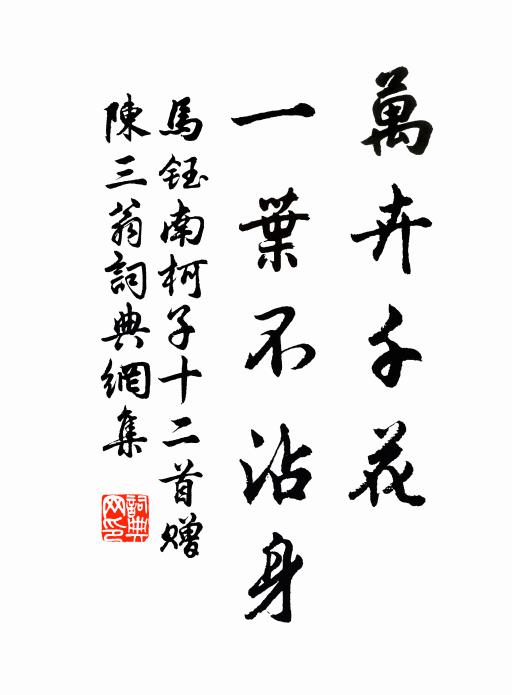 萬卉千花
一葉不沾身
馬鈺南柯子十二首赠
陳三翁詞典網集
詞典
网印